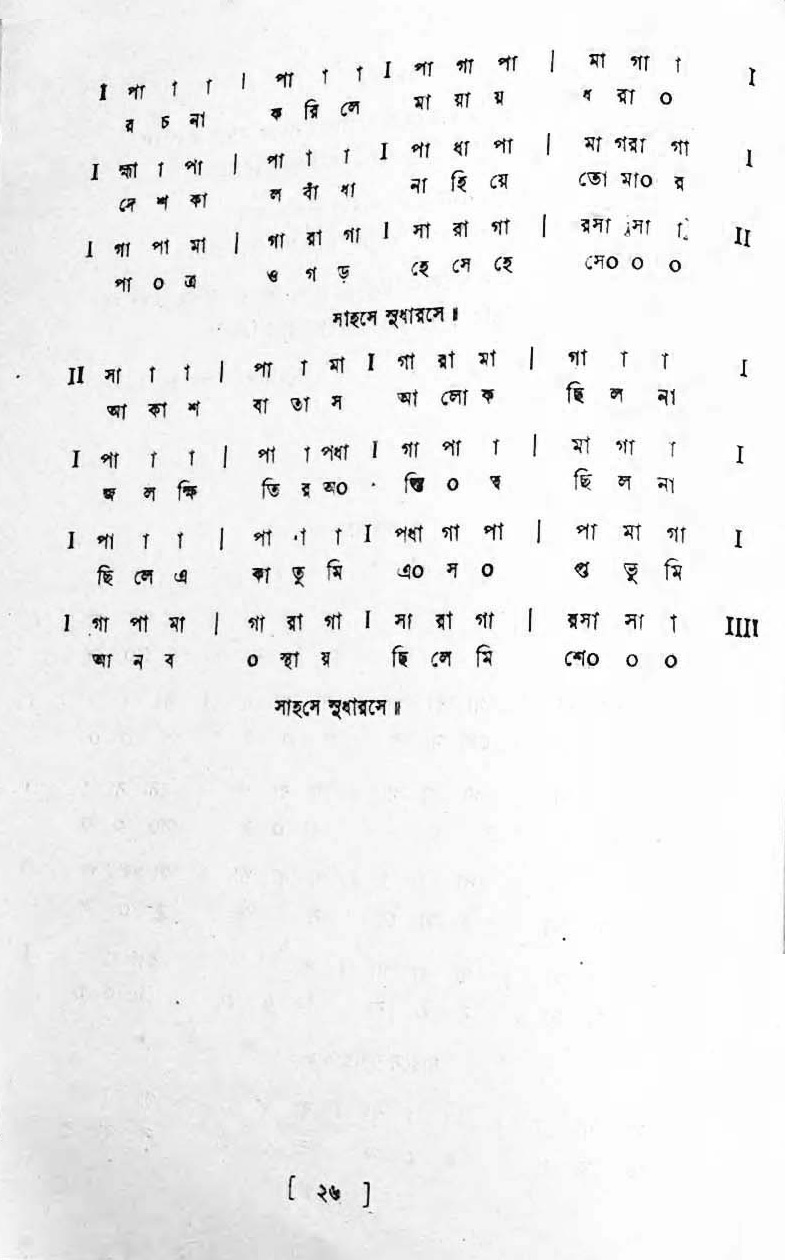 I পা া া | পা া া I পা গা পা | মা গা া I
র চ না ক রি লে মা য়া য় ধ রা ০
I হ্মা া পা | পা া া I পা ধা পা | মা গরা গা I
দে শ কা ল বাঁ ধা না হি য়ে তো মা০ র
I গা পা মা | গা রা গা I সা রা গা | রসা সা া II
পা ০ ত্র ও গ ড় হে সে হে সে০ ০ ০
সাহসে সুধারসে॥
II সা া া | পা া মা I গা রা মা | গা া া I
আ কা শ বা তা স আ লো ক ছি ল না
I পা া া | পা া পধা I গা পা া | মা গা া I
জ ল ক্ষি তি র অ০ স্তি ০ ত্ব ছি ল না
I পা া া | পা া া I পধা গা পা | পা মা গা I
ছি লে এ কা তু মি এ০ স ০ গু ভূ মি
I গা পা মা | গা রা গা I সা রা গা | রসা সা া IIII
আ ন ব ০ স্থা য় ছি লে মি শে০ ০ ০
সাহসে সুধারসে॥
[ ২৬ ]